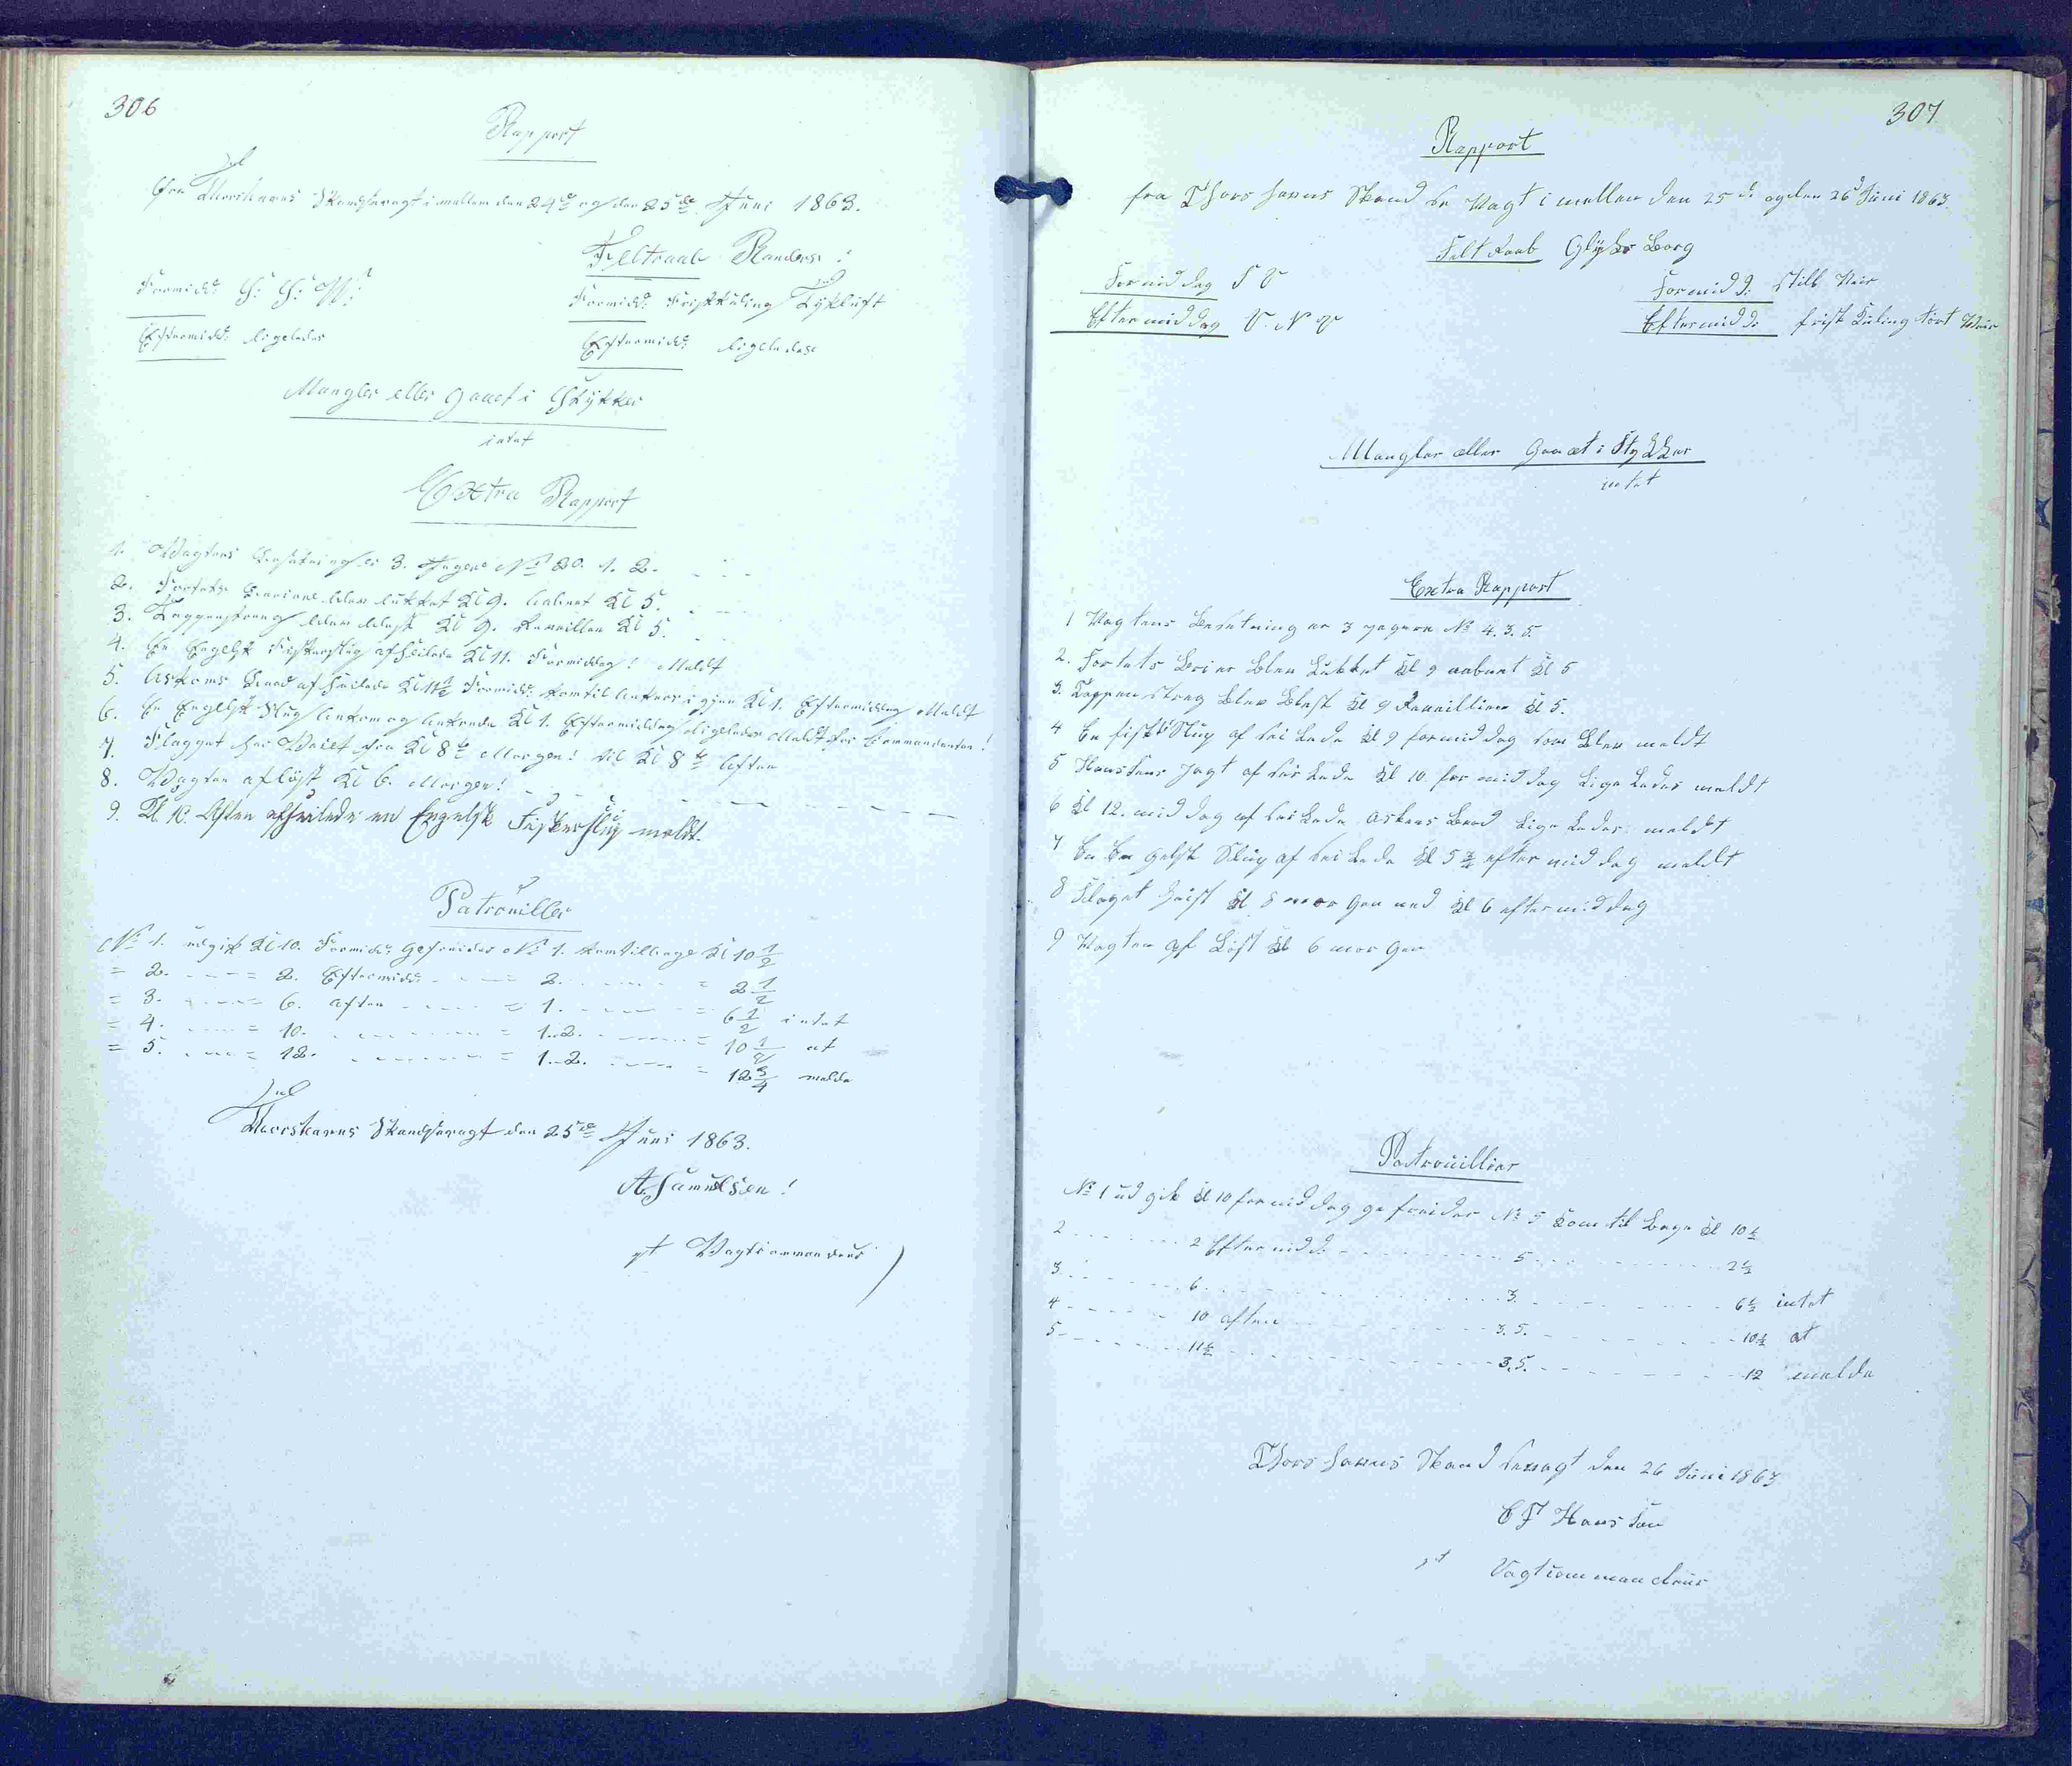 306
Rapport
fra Thorshavns Skandsevagt imellem den 24de og den 25de Juni 1863.
Feltraab Randers!
Formidd: S: S: W:
Formidd: Friskkuling Tykluft
Eftermidd: ligeledes
Eftermidd: ligeledes
Mangler eller gaaet i Stykker
intet
Extra Rapport
1. Vagtens Besætning er 3. Jægere No 20. 1. 2.
2. Fortets Barriere blev lukket Kl 9. aabnet Kl 5.
3. Tappenstreg blev blæst Kl 9. Revaillen Kl 5.
4. En Engelsk Fiskerslup afseilede Kl 11. Formiddag! Meldt
5. Askams Baad afseilede Kl 11½ Formidd: kom til Ankers igjen Kl 1. Eftermiddag Meldt
6. En Engelsk Slup ankom og ankrede Kl 1. Eftermiddag ligeledes Meldt for Commandanten!
7. Flagget har Vaiet fra Kl 8te Morgen! til Kl 8te Aften
8. Vagten afløst Kl 6. Morgen!
9. Kl. 10. Aften afseilede en Engelsk Fiskerslup meldt.
Patrouiller
No 1. udgik Kl 10. Formidd: Gefreider No 1. kom tilbage Kl 10 1/2
= 2. - - - = 2. Eftermidd: - - - = 2. - - - = 2 1/2
= 3. - - - = 6. aften - - - = 1. - - - = 6 1/2 intet
= 4. - - - = 10. - - - = 1.2. - - - = 10 1/2 at
= 5. - - - = 12. - - - = 1.2. - - - = 12 3/4 melde
Thorshavns Skandsevagt den 25de Juni 1863.
A Samuelsen!
pt Vagtcommandeur
307
Rapport
fra Thorshavns Skandse Vagt i mellem den 25 d. og den 26d Juni 1863.
Felt Raab Glyks Borg
Formiddag S V
Formidd: still Veir
Eftermiddag V. N V
Eftermidd: frisk Kuling tört Veir
Mangler eller Gaaet i Stykker
intet
Extra Rapport
1 Vagtens Besetning er 3 yegere No 4. 3. 5.
2. Fortets Barier blev Lukket Kl 9 aabnet Kl 5
3. Tappenstreg blev blæst Kl 9 Revaillien Kl 5.
4 En fisk Slup af sei Lede Kl 9 formiddag som blev meldt
5 Hansens Jagt af sei Lede Kl 10 for middag Lige Ledes meldt
6 Kl 12. mid dag af sei Lede Askams Baad Lige Ledes meldt
7 En En gelsk Slup af sei Lede Kl 5 ¾ efter mid dag meldt
8 Flaget heist Kl 8 mor gen ned Kl 6 eftermiddag
9 Vagten af Löst Kl 6 mor gen
Patrouillier
No 1 ud gik Kl 10 formiddag ge freider No 5 Kom til Bage Kl 10½
2 - - - 2 Eftermidd: - - - 5 - - - 2½
3 - - - 6 - - - 3 - - - 6½ intet
4 - - - 10 aften - - - 3. 5. - - - 10½ at
5 - - - 11½ - - - 3. 5. - - - 12 melde
Thorshavns Skandsevagt den 26 Juni 1863
C F Hansen
pt Vagtcommandeur